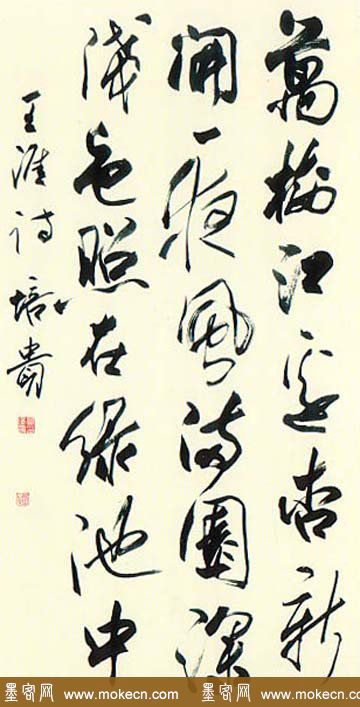 萬樹江邊杏新
開一夜風滿園深
淺色照在綠池中
王涯诗 培貴
墨客网 www.mokecn.com 墨客网 www.mokecn.com